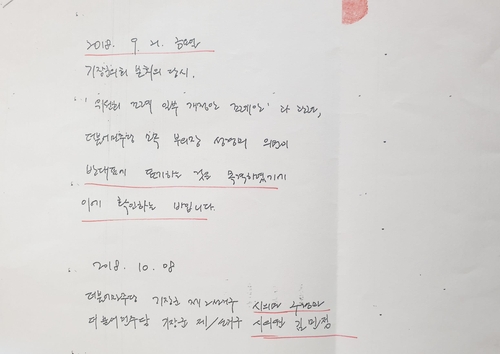 2018. 9. 21. 금요일
기장군의회 본회의 당시,
일부 개정안 조례안' 과 관련,
더불어민주당 소속 부의장 성경미 의원이
반대표에 표기하는 것을 목격하였기에
이에 확인하는 바입니다.
2018. 10. 08
더불어민주당 기장군 제2선거구 시의원
더불어민주당 기장군 제1선거구 시의원 김민정